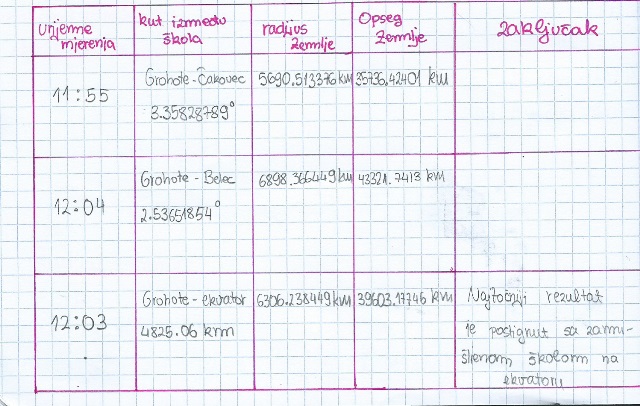 vrijeme mjerenja
kut između škola
radijus Zemlje
Opseg Zemlje
zaključak
11:55
Grohote-Čakovec
3.35828789°
5690.513376 km
35736.42401 km
12:04
Grohote-Belec
2.53651854°
6898.366449 km
43321.7413 km
12:03
Grohote-ekvator
4825.06 km
6306.238449 km
39603.17746 km
Najtočniji rezultat
je postignut sa zami-
šljenom školom na
ekvatoru